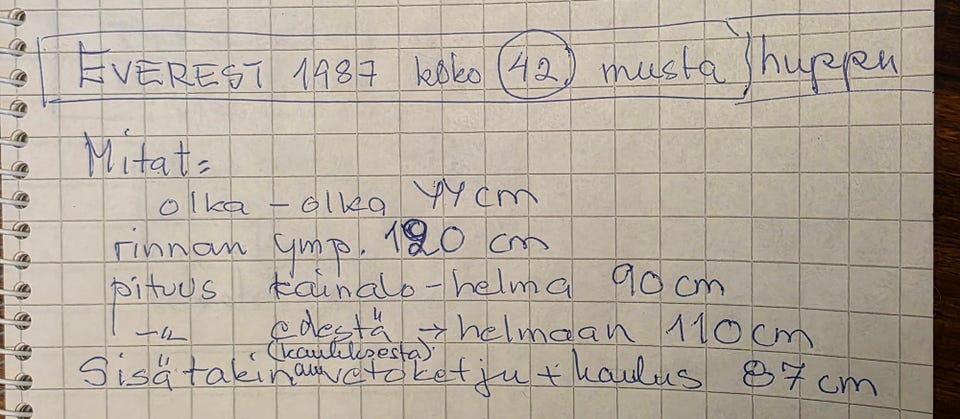 EVEREST 1987 koko 42 musta huppu
Mitat:
olka - olka 44 cm
rinnan ymp. 120 cm
pituus kainalo - helma 90 cm
-"- edestä → helmaan 110 cm
(kauluksesta)
Sisätakin vetoketju + kaulus 87 cm